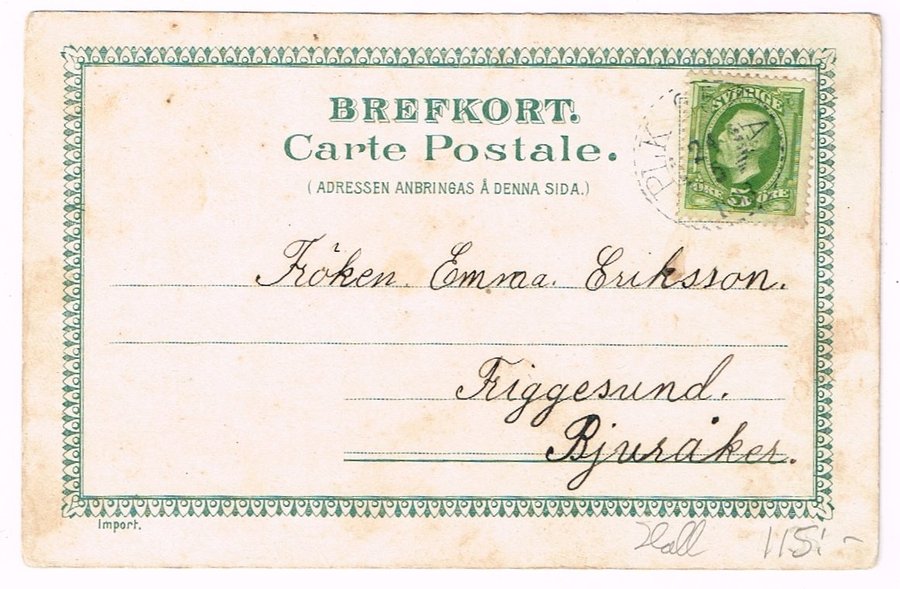 BREFKORT.
Carte Postale.
(ADRESSEN ANBRINGAS Å DENNA SIDA.)
SVERIGE
ÖRE 5 ÖRE
Fröken. Emma. Eriksson.
Friggesund.
Bjuråker.
Import.
115:-